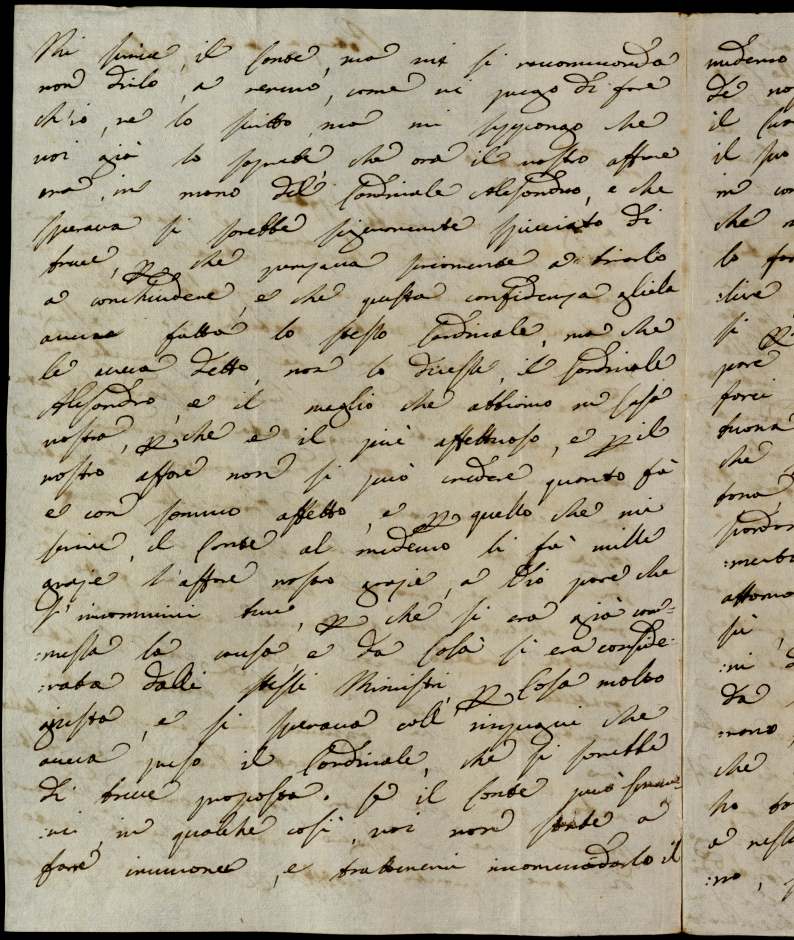 Mi scrive, il Conte, ma mi si raccomanda
non dirlo, a nessuno, come vi prego di fare
ch'io, ve lo scritto, ma mi suppongo che
voi già lo saprete che ora il nostro affare
era, in mano del Cardinale Alesandro, e che
sperava si sarebbe sicuramente spicciato di
breve, p che pensava seriamente a tirarlo
a conchiudere, e che questa confidenza gliela
aveva fatta lo stesso Cardinale, ma che
le aveva detto, non lo dicesse, il Cardinale
Alesandro, e il meglio che abbiamo in Casa
nostra, p che e il più affettuoso, e p il
nostro affare non si può credere quanto fà
e con sommo affetto, e p quello che mi
scrive, il Conte al medemo li fà mille
grazie l'affare nostro grazie, a Dio pare che
s'incammini bene, p che si era già com=
:messa la causa, e da Cosà si era conside:
:rata dalli stessi Ministri, p Cosa molto
giusta, e si sperava coll' impegni che
aveva preso il Cardinale, che si sarebbe
di breve proposta. Se il Conte può
:vi, in qualche cosa, voi non state a
fare, e trattenervi incomodarlo il
medemo
de no
il
il suo
in con
che n
lo far
:live
si p
pare
forci
buona
che
:mento
attorno
si
:ni d
da
:mano
che
ho
a ness
:no, p